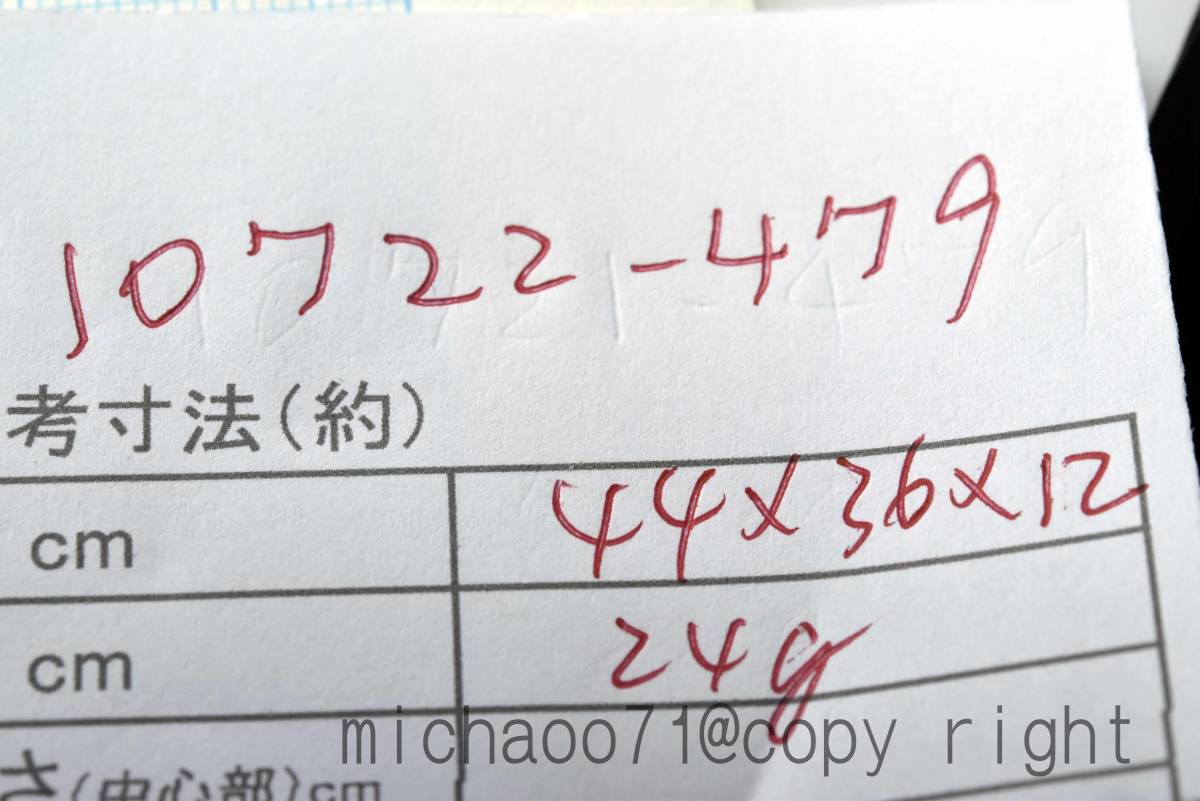 10722-479
考寸法(約)
cm 44×36×12
cm 24g
さ(中心部)cm
michaoo71@copy right